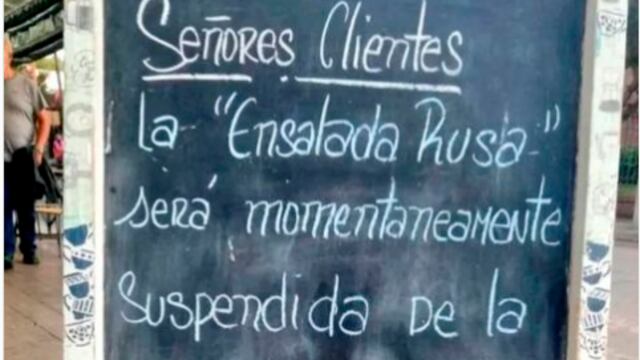 Señores Clientes
la "Ensalada Rusa"
será momentaneamente
suspendida de la